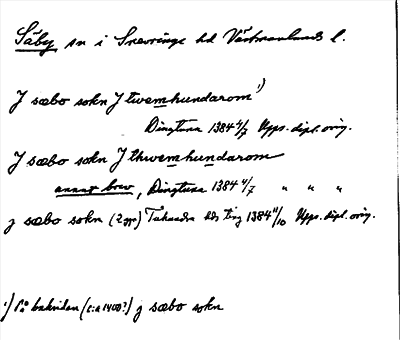 Säby sn i Snevringe hd Västmanlands l.
J sæbo sokn J twemhundarom 1)
Dingtuna 1384 4/7 Upps. dipl. orig.
J sæbo sokn J thwemhundarom
annat brev, Dingtuna 1384 4/7 " " "
j sæbo sokn (2 ggr) Tuhundra hds ting 1384 11/10 Upps. dipl. orig.
1) På baksidan (c:a 1400?) j sæbo sokn